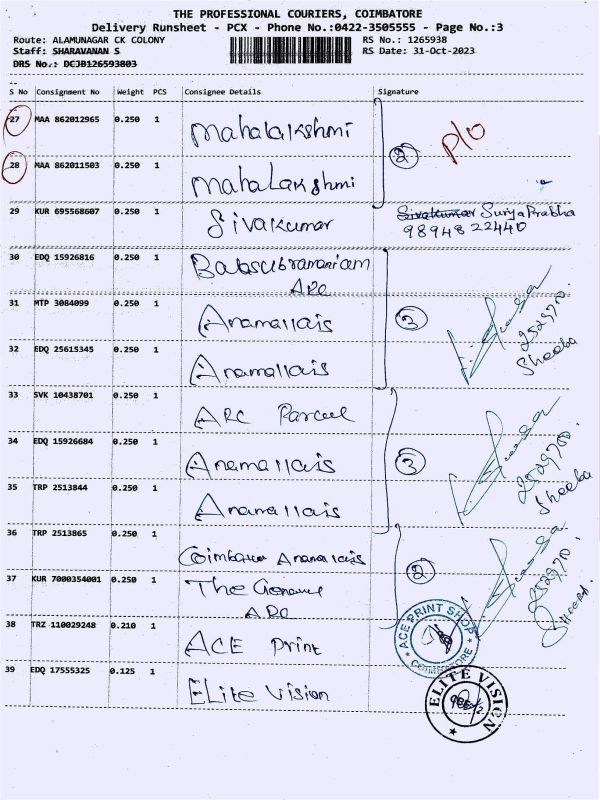 THE PROFESSIONAL COURIERS, COIMBATORE
Delivery Runsheet - PCX - Phone No.:0422-3505555 - Page No.:3
Route: ALAMUNAGAR CK COLONY RS No.: 1265938
Staff: SHARAVANAN S RS Date: 31-Oct-2023
DRS No.: DCJB126593803
S No Consignment No Weight PCS Consignee Details Signature
27 MAA 862012965 0.250 1 Mahalakshmi
2 P/O
28 MAA 862011503 0.250 1 Mahalakshmi
29 KUR 695568607 0.250 1 Sivakumar Sivakumar Surya Prabha
98948 22440
30 EDQ 15926816 0.250 1 Balasubramaniam
ARC
31 MTP 3084099 0.250 1 Anamallais 3 252970. Sheeba
32 EDQ 25615345 0.250 1 Anamallais
33 SVK 10438701 0.250 1 ARC Parcel
34 EDQ 15926684 0.250 1 Anamallais 3 252970. Sheeba
35 TRP 2513844 0.250 1 Anamallais
36 TRP 2513865 0.250 1 Coimbatore Anamallais
2 252970. Sheeba.
37 KUR 7000354001 0.250 1 The General
ARC
38 TRZ 110029248 0.210 1 ACE Print ACE PRINT SHOP COIMBATORE
39 EDQ 17555325 0.125 1 ELite Vision ELITE VISION